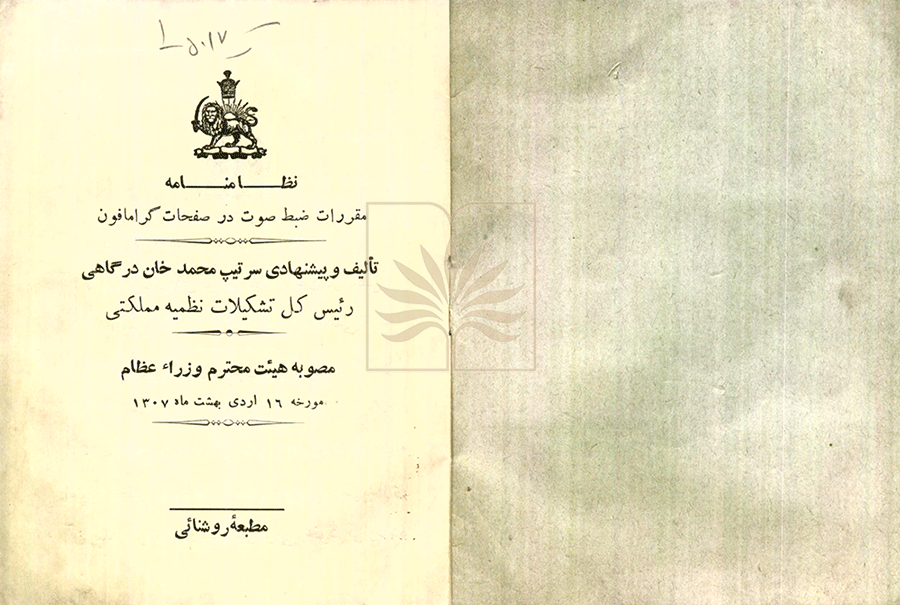 نظامنامه
مقررات ضبط صوت در صفحات گرامافون
تألیف و پیشنهادی سرتیپ محمد خان درگاهی
رئیس کل تشکیلات نظمیه مملکتی
مصوبه هیئت محترم وزراء عظام
مورخه ۱۶ اردی بهشت ماه ۱۳۰۷
مطبعهٔ روشنائی